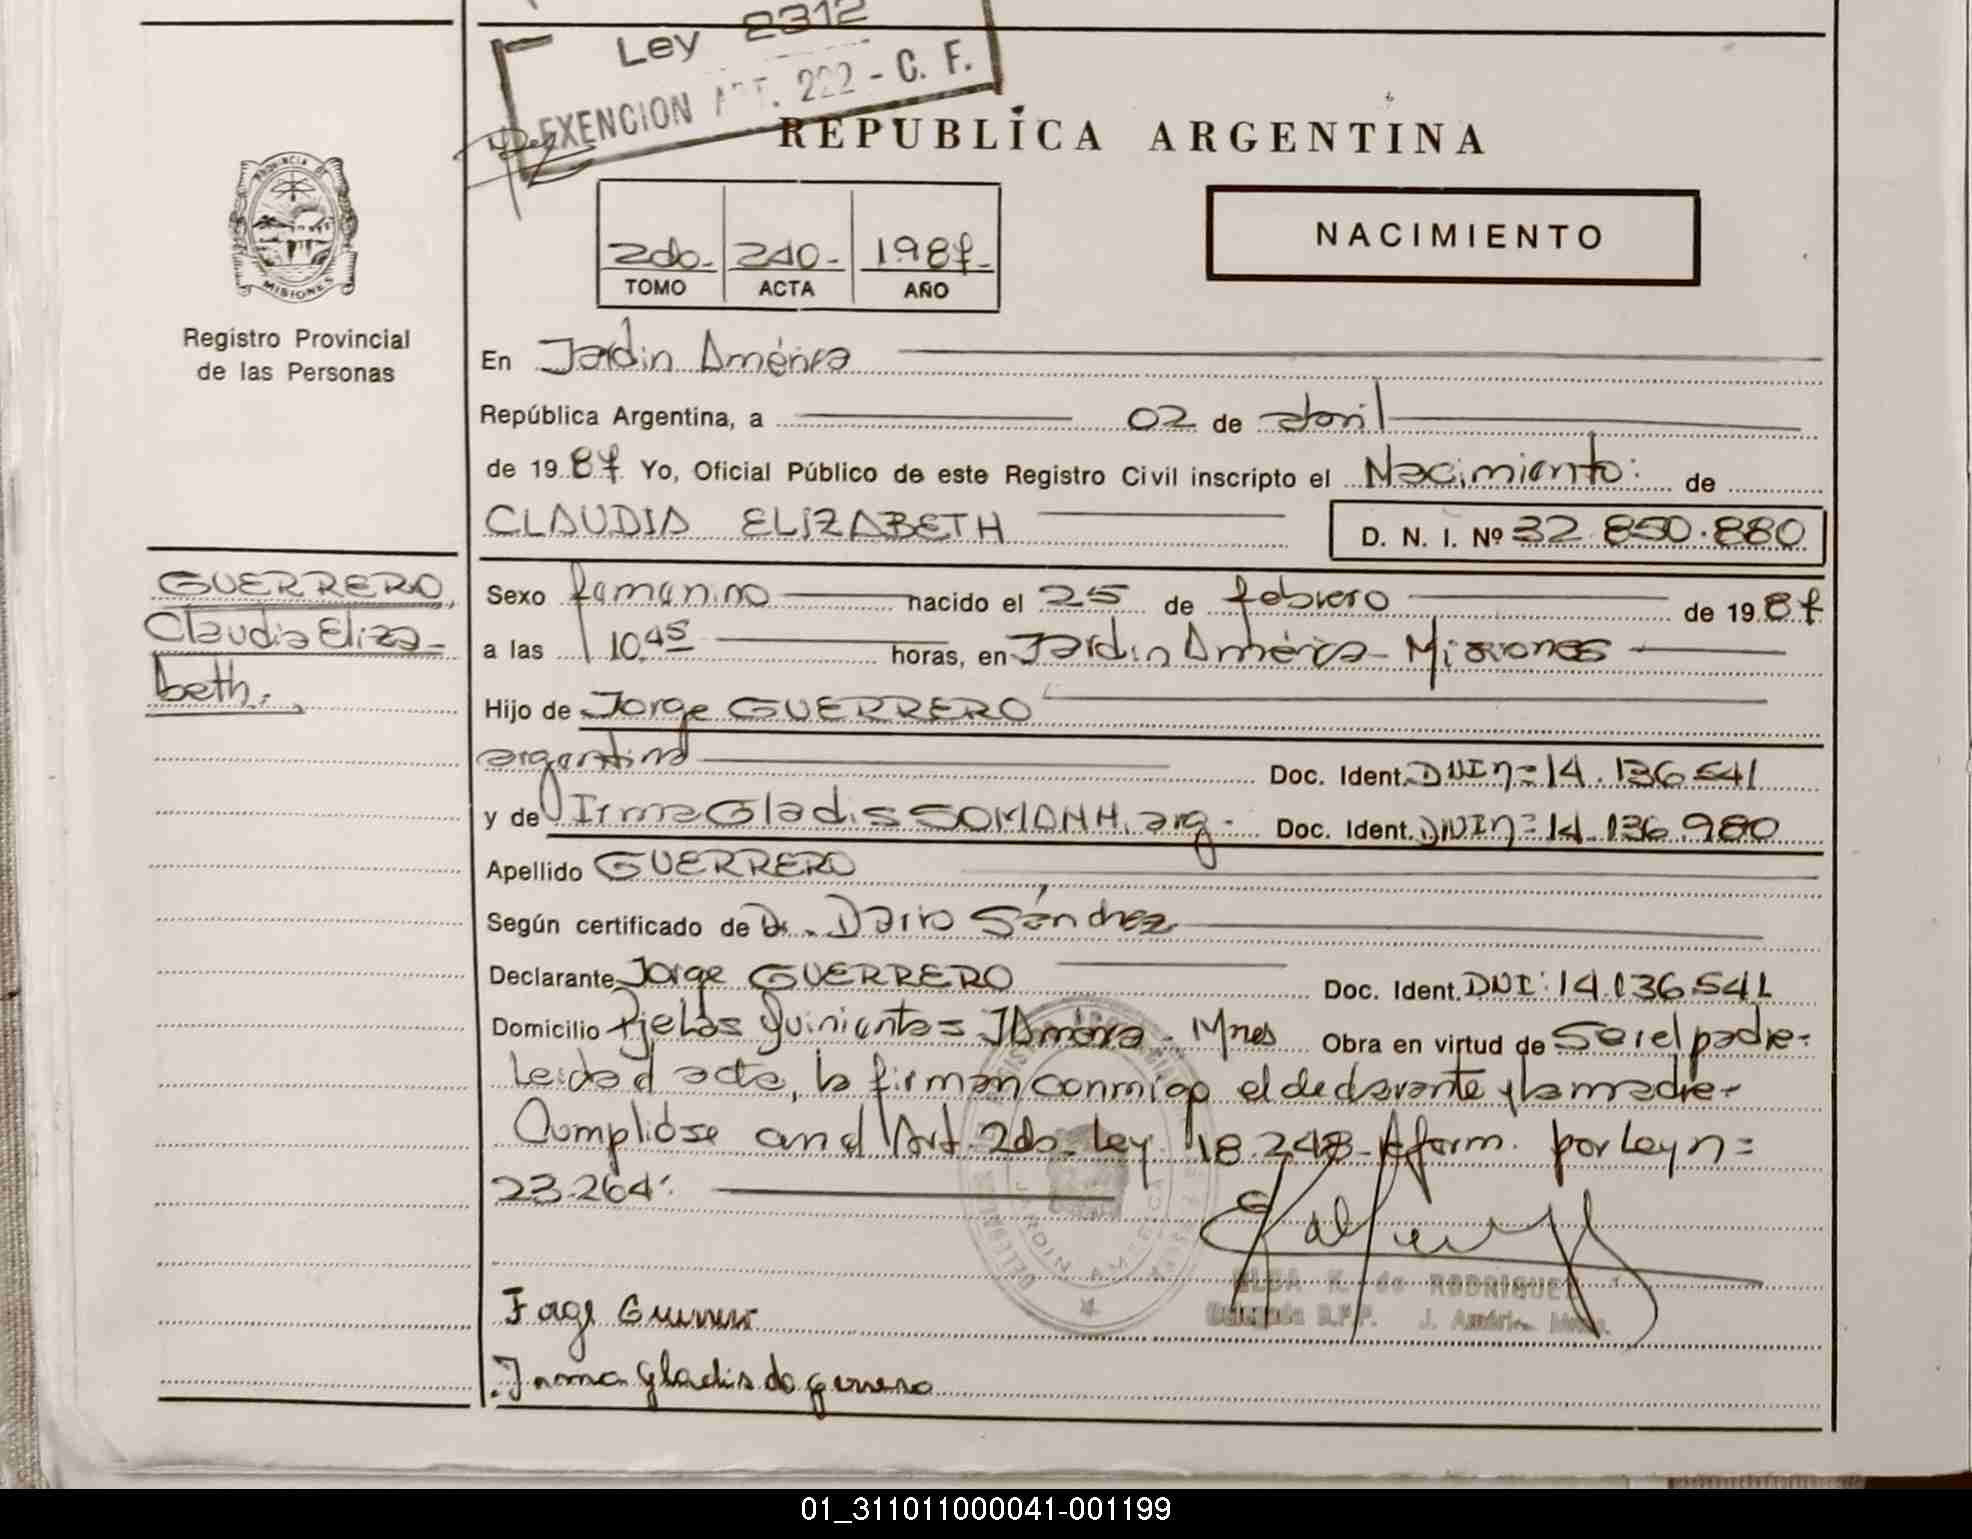 Ley 2312
EXENCION ART. 222 - C. F.
REPUBLICA ARGENTINA
PROVINCIA DE
MISIONES
Registro Provincial
de las Personas
2do- 240- 1987-
TOMO ACTA AÑO
NACIMIENTO
En Jardin América
República Argentina, a 02 de abril
de 1987 Yo, Oficial Público de este Registro Civil inscripto el Nacimiento: de
CLAUDIA ELIZABETH D. N. I. Nº 32.850.880
GUERRERO,
Claudia Eliza-
beth.
Sexo femenino nacido el 25 de febrero de 1987
a las 10,45 horas, en Jardin América - Misiones
Hijo de Jorge GUERRERO
argentino Doc. Ident. DNI n= 14.136.541
y de Irma Gladis arg. Doc. Ident. DNI n= 14.136.980
Apellido GUERRERO
Según certificado de Dr. Dario Sánchez
Declarante Jorge GUERRERO Doc. Ident. DNI: 14.136.541
Domicilio Pje Las Quinientas J América - Mnes Obra en virtud de Ser el padre-
Leida el acta, la firman conmigo el declarante y la madre-
Cumplióse con el Art. 2do- Ley 18.248- Reform. por Ley n=
23.264.
JARDIN AMERICA
ELBA K. de RODRIGUEZ
Delegada R.P.P. J. América Mnes.
Jorge Guerrero
Irma Gladis de gerrero
01_311011000041-001199